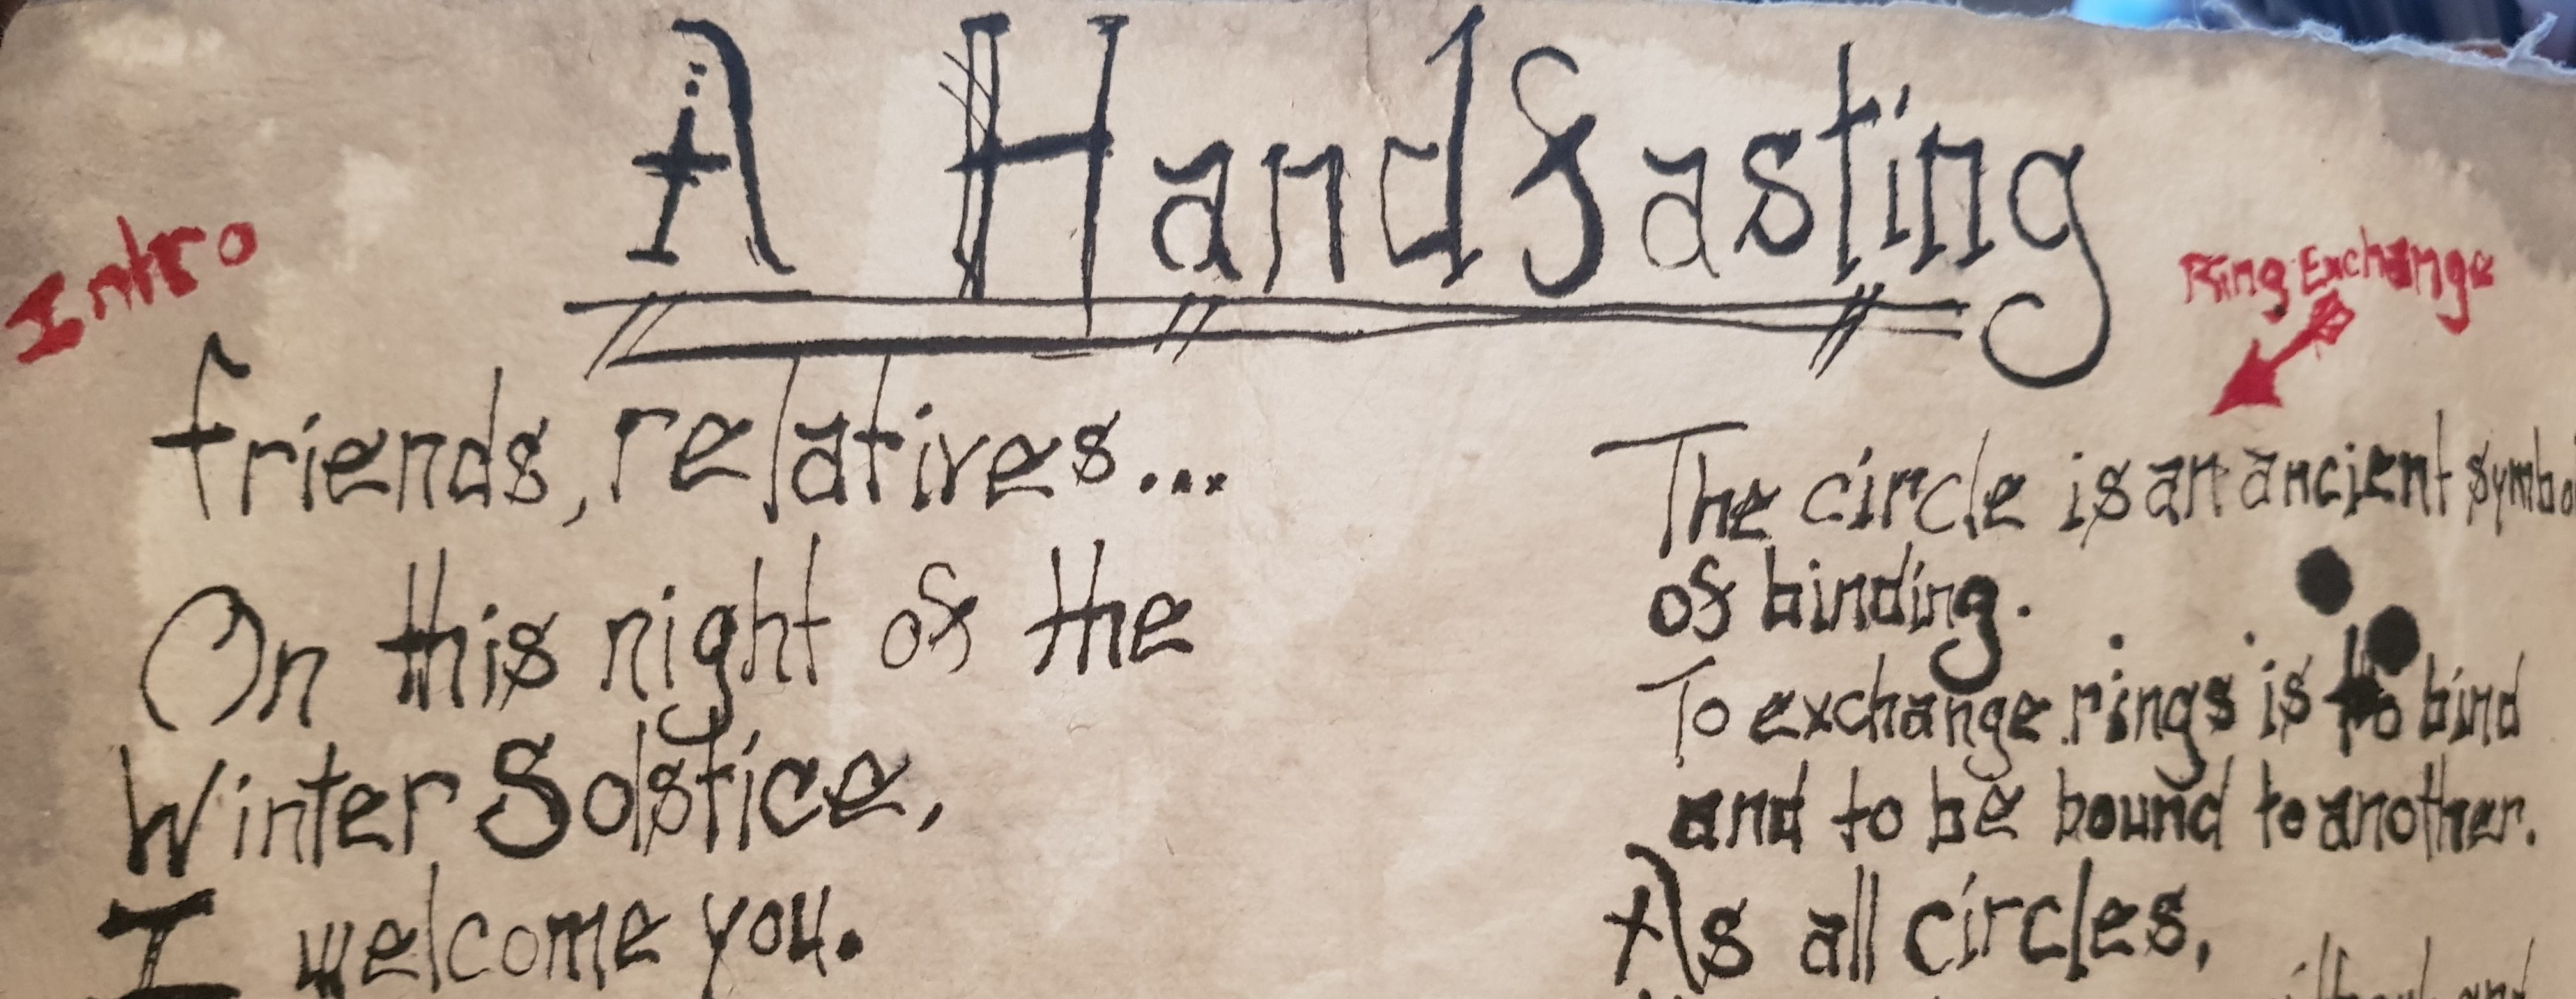 A Handfasting
Intro
friends, relatives...
On this night of the
Winter Solstice,
I welcome you.
Ring Exchange
The circle is an ancient symbol
of binding.
To exchange rings is to bind
and to be bound to another.
As all circles,